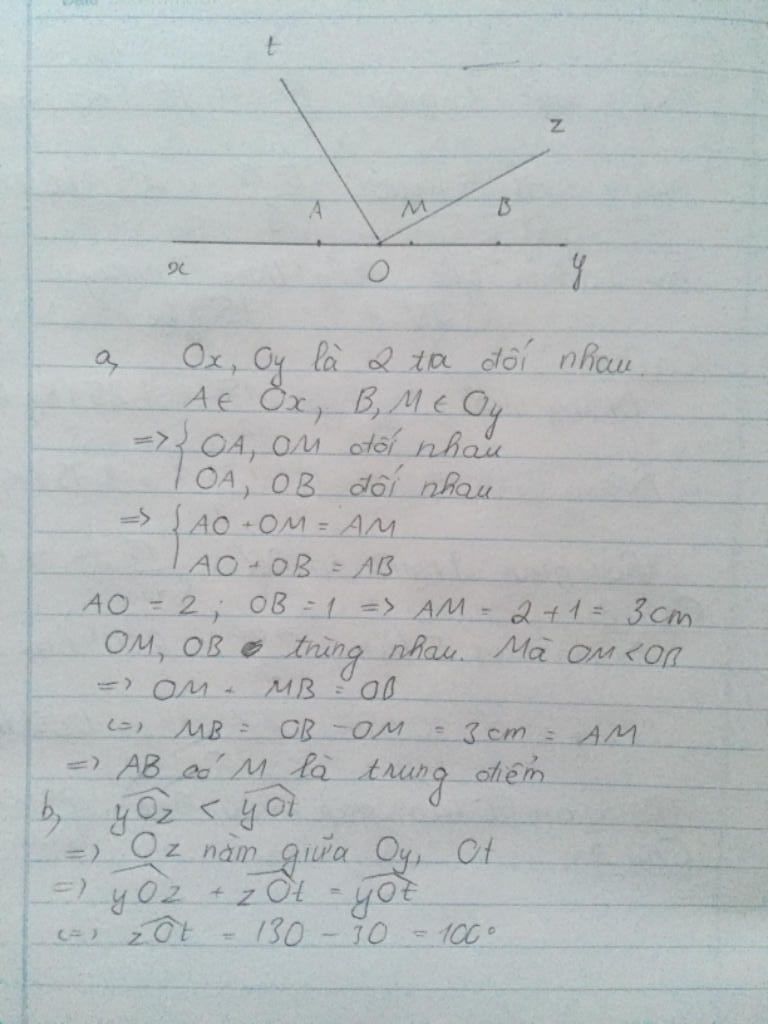 t
z
A M B
x O y
a, Ox, Oy là 2 tia đối nhau.
A ∈ Ox, B, M ∈ Oy
=> { OA, OM đối nhau
OA, OB đối nhau
=> { AO + OM = AM
AO + OB = AB
AO = 2 ; OB = 1 => AM = 2 + 1 = 3 cm
OM, OB trùng nhau. Mà OM < OB
=> OM + MB = OB
<=> MB = OB - OM = 3 cm = AM
=> AB có M là trung điểm
b, yOz < yOt
=> Oz nằm giữa Oy, Ot
=> yOz + zOt = yOt
<=> zOt = 130 - 30 = 100°